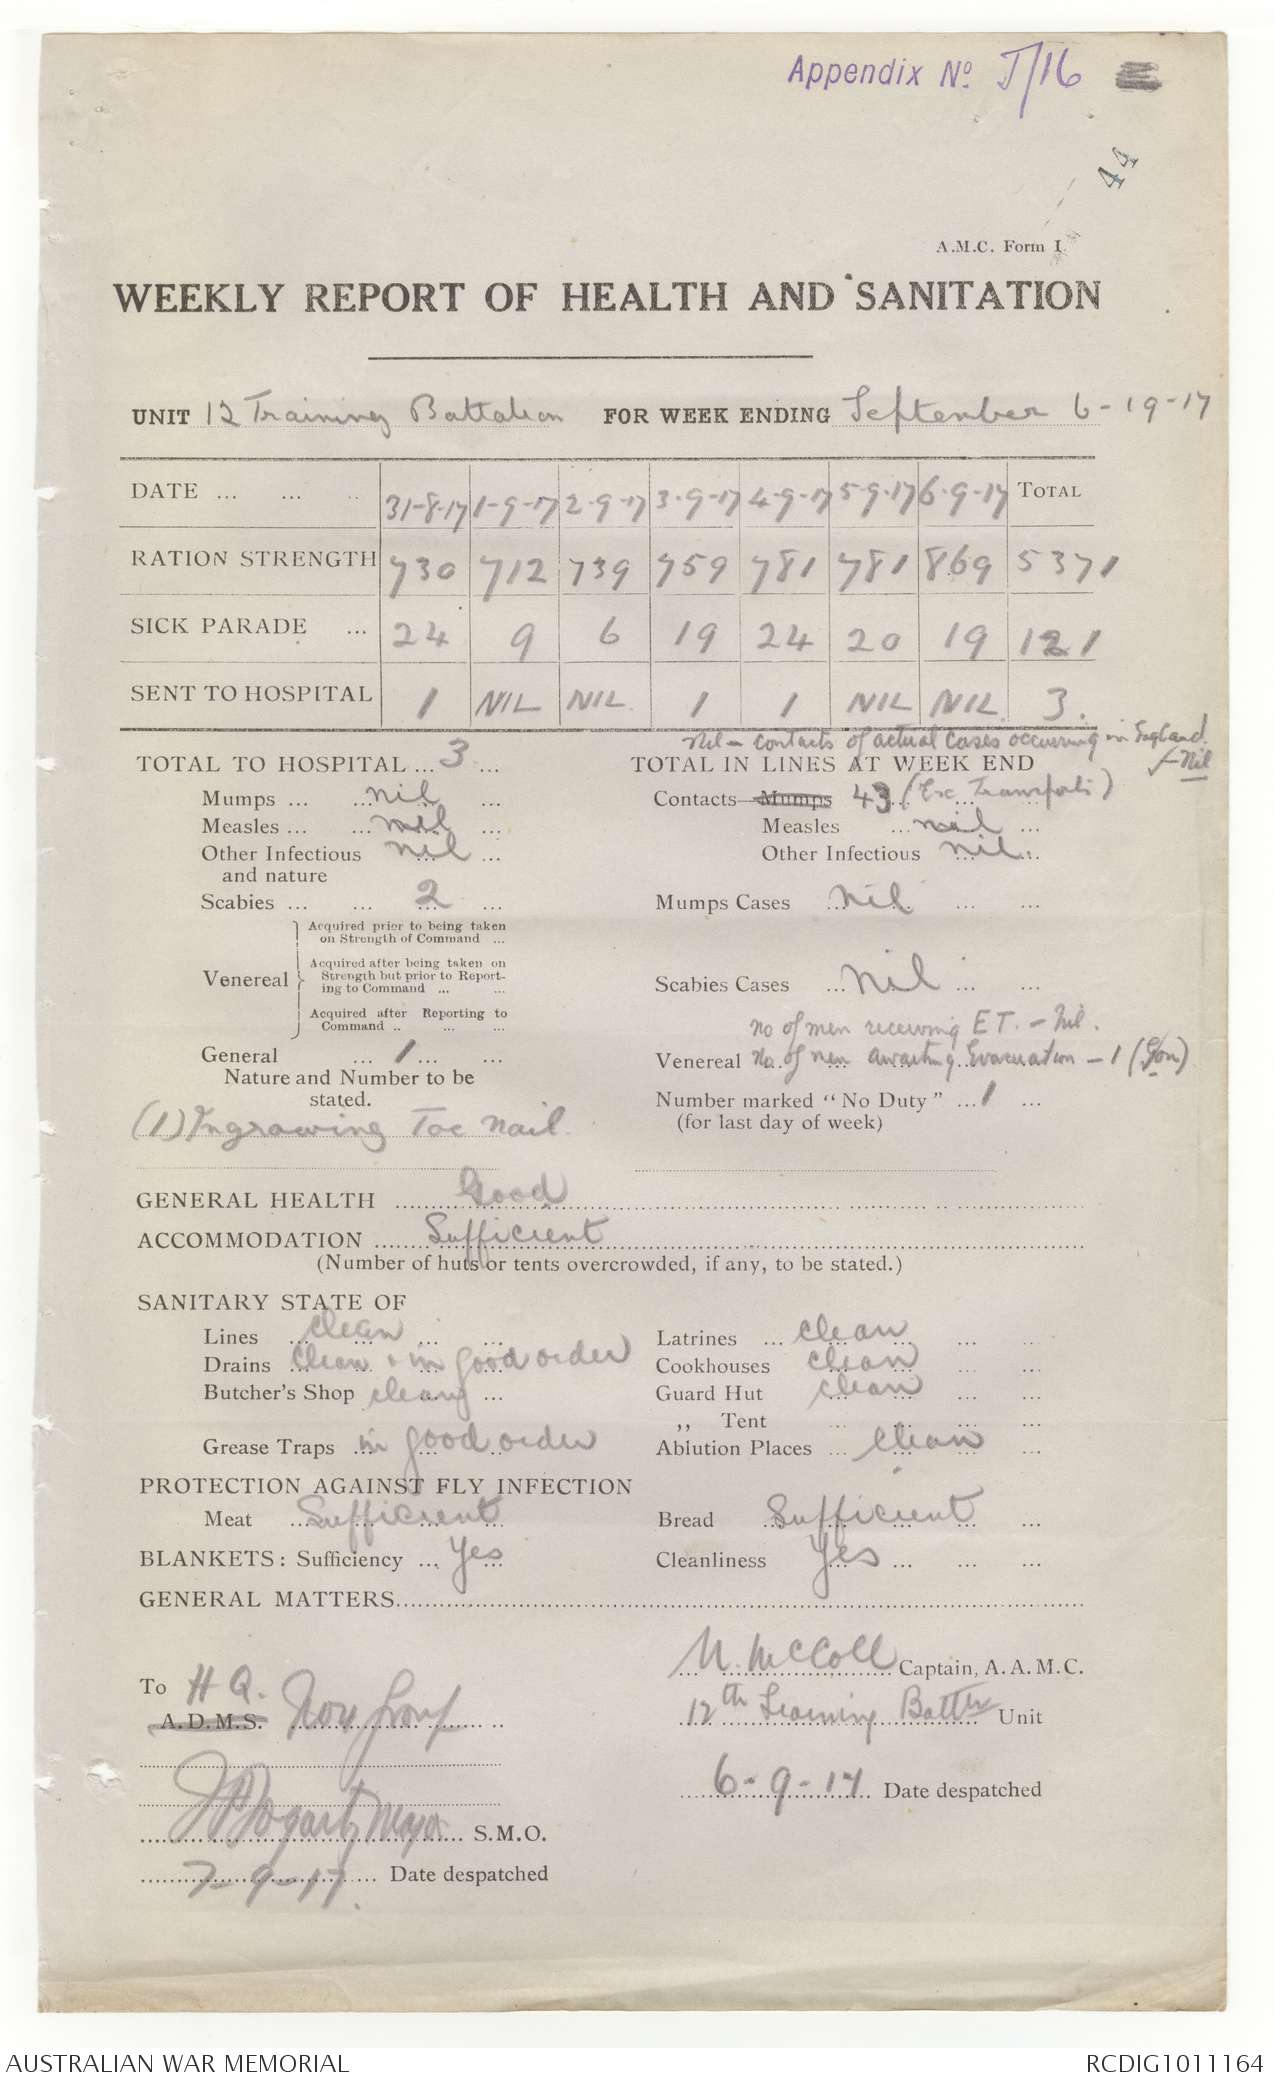 Appendix No J/16
44
A.M.C. Form I
WEEKLY REPORT OF HEALTH AND SANITATION
UNIT 12 Training Battalion FOR WEEK ENDING September 6-19-17
DATE ... ... .. 31-8-17 1-9-17 2-9-17 3-9-17 4-9-17 5-9-17 6-9-17 TOTAL
RATION STRENGTH 730 712 739 759 781 781 869 5371
SICK PARADE ... 24 9 6 19 24 20 19 121
SENT TO HOSPITAL 1 NIL NIL. 1 1 NIL NIL. 3.
Nil - contacts of actual cases occurring in England.
TOTAL TO HOSPITAL ... 3 ... TOTAL IN LINES AT WEEK END - Nil
Mumps ... ... nil ... Contacts—Mumps 43 (Ex Transports)
Measles ... ... nil ... Measles ... nil ...
Other Infectious nil ... Other Infectious nil ...
and nature
Scabies ... ... 2 ... Mumps Cases ... nil ... ...
Acquired prior to being taken
on Strength of Command ...
Venereal Acquired after being taken on
Strength but prior to Report-
ing to Command ... ...
Scabies Cases ... Nil ... ...
Acquired after Reporting to
Command .. ... ...
no of men receiving E T. - Nil.
General ... 1 ... ... Venereal No. of men awaiting Evacuation - 1 (Gon)
Nature and Number to be
stated.
Number marked "No Duty" ... 1 ...
(for last day of week)
(1) Ingrowing Toe Nail.
GENERAL HEALTH Good
ACCOMMODATION Sufficient
(Number of huts or tents overcrowded, if any, to be stated.)
SANITARY STATE OF
Lines ... clean ... ... Latrines ... clean ... ...
Drains clean & in good order Cookhouses clean ... ...
Butcher's Shop clean ... Guard Hut clean ... ...
,, Tent ... ... ... ...
Grease Traps in good order Ablution Places ... clean ...
PROTECTION AGAINST FLY INFECTION
Meat ... Sufficient Bread ... Sufficient ...
BLANKETS: Sufficiency ... Yes Cleanliness Yes ... ... ...
GENERAL MATTERS
N. McColl Captain, A.A.M.C.
To H Q.
A.D.M.S. Group
12th Training Battn Unit
6-9-17 Date despatched
Major S.M.O.
7-9-17. Date despatched
AUSTRALIAN WAR MEMORIAL RCDIG1011164